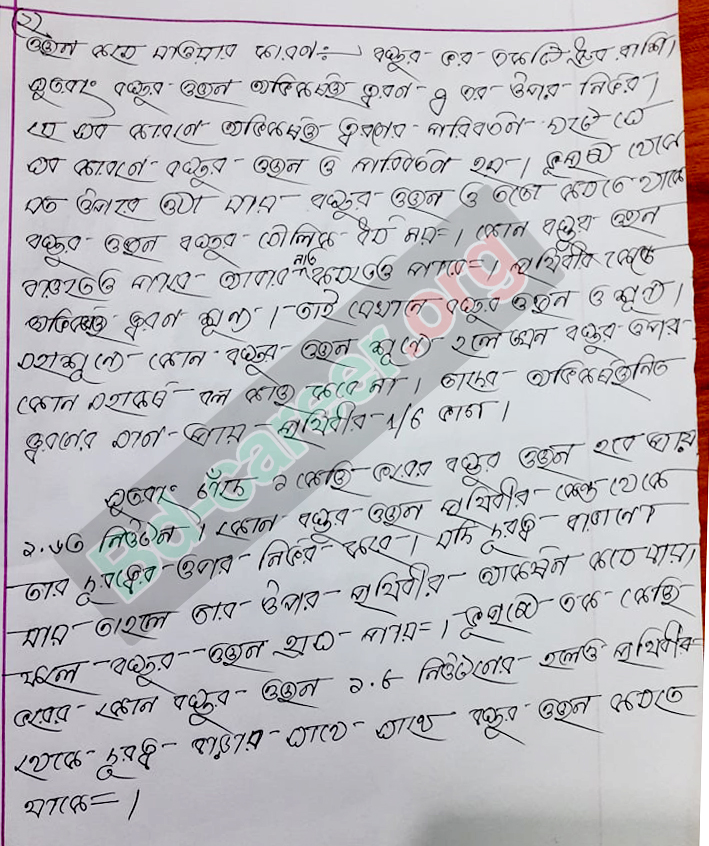 ২)
ওজন কমে যাওয়ার কারণ:- বস্তুর ভর একটি ধ্রুব রাশি।
সুতরাং বস্তুর ওজন অভিকর্ষজ ত্বরণ g এর উপর নির্ভর।
যে সব কারণে অভিকর্ষজ ত্বরণের পরিবর্তন ঘটে সে
সব কারণে বস্তুর ওজন ও পরিবর্তন হয়। ভূপৃষ্ঠ থেকে
যত উপরে উঠা যায় বস্তুর ওজন ও তত কমতে থাকে
বস্তুর ওজন বস্তুর মৌলিক ধর্ম নয়। কোন বস্তুর ওজন
বাড়তেও পারে আবার নাও কমতেও পারে। পৃথিবীর কেন্দ্রে
অভিকর্ষজ ত্বরণ শূন্য। তাই সেখানে বস্তুর ওজন ও শূন্য।
মহাশূন্যে কোন বস্তুর ওজন শূন্য হলে তখন বস্তুর উপর
কোন মহাকর্ষ বল কাজ করে না। চাঁদের অভিকর্ষজনিত
ত্বরণের মান প্রায় পৃথিবীর 1/6 ভাগ।
সুতরাং চাঁদে ১ কেজি ভরের বস্তুর ওজন হবে প্রায়
১.৬৩ নিউটন। কোন বস্তুর ওজন পৃথিবীর কেন্দ্র থেকে
তার দূরত্বের উপর নির্ভর করে। যদি দূরত্ব বাড়ানো
যায় তাহলে তার উপর পৃথিবীর আকর্ষন কমে যায়।
ফলে বস্তুর ওজন হ্রাস পায়। ভূপৃষ্ঠে এক কেজি
ভরের কোন বস্তুর ওজন ৯.৮ নিউটনের হলেও পৃথিবীর
থেকে দূরত্ব বাড়ার সাথে সাথে বস্তুর ওজন কমতে
থাকে।
Bd-career.org